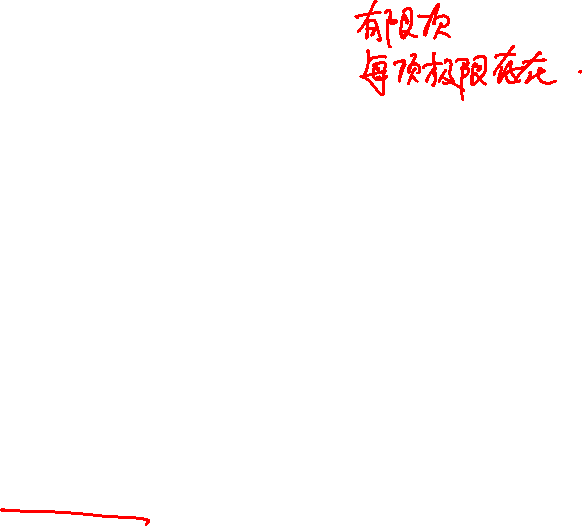 有限次
每项极限存在.